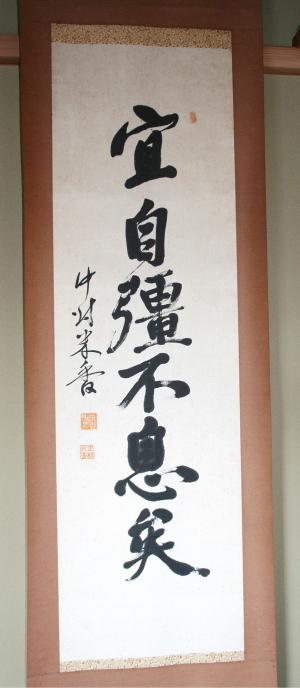 宜自彊不息矣
中村米香